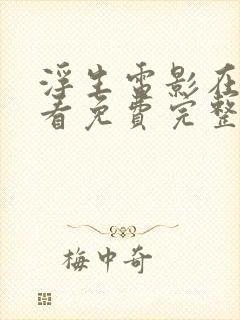 浮生雷影在
看免費完整
梅中奇